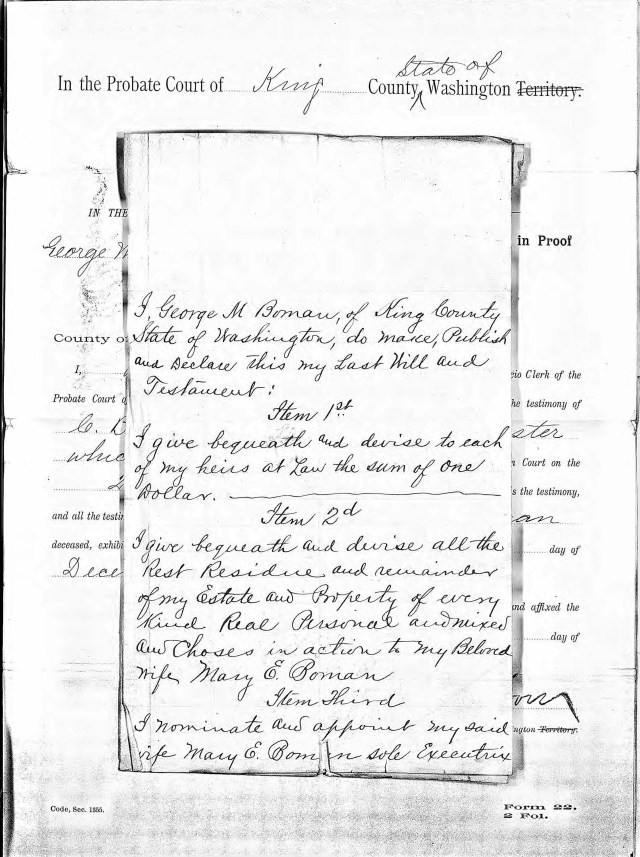 State of
In the Probate Court of King County, Washington Territory.
IN THE
in Proof
George M
I, George M Boman, of King County
County o
State of Washington, do make, Publish
and Declare this my Last Will and
I,
cio Clerk of the
Testament:
Probate Court
he testimony of
Item 1st
C.
ster
I give bequeath and devise to each
whic
Court on the
of my heirs at Law the sum of one
s the testimony,
Dollar.
and all the testi
an
Item 2d
deceased, exhibi
day of
I give bequeath and devise all the
Dece
Rest Residue and remainder
of my Estate and Property of every
nd affixed the
Kind Real Personal and mixed
day of
and Choses in action to my Beloved
wife, Mary E. Boman
Item Third
I nominate and appoint my said
ngton Territory.
wife Mary E. Bom n sole Executrix
Code, Sec. 1355.
Form 22.
2 Fol.